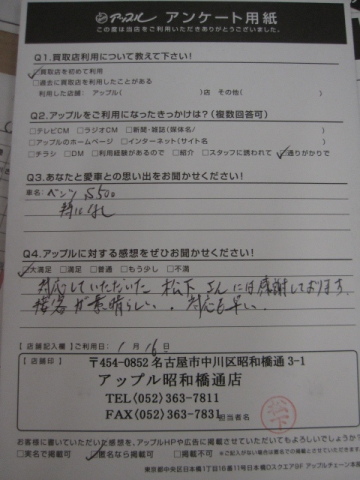 アップル アンケート用紙
この度は当店をご利用いただきありがとうございました。
Q1.買取店利用について教えて下さい!
買取店を初めて利用
過去に買取店を利用したことがある
利用した店舗: アップル( )店 その他( )
Q2.アップルをご利用になったきっかけは?(複数回答可)
□テレビCM □ラジオCM □新聞・雑誌(媒体名/ )
□アップルのホームページ □インターネット(サイト名 )
□チラシ □DM □利用経験があるので □紹介 □スタッフに誘われて 通りがかりで
Q3.あなたと愛車との思い出をお聞かせください!
車名: ベンツ S500
特になし
Q4.アップルに対する感想をぜひお聞かせください!
大満足 □満足 □普通 □もう少し □不満
対応していただいた 松下 さんには感謝しております。
接客が素晴らしい。対応も早い。
【店舗記入欄】ご利用日: 1月 16日
【店舗印】
〒454-0852 名古屋市中川区昭和橋通3-1
アップル昭和橋通店
TEL(052)363-7811
FAX(052)363-7831
担当者名
松下
お客様に書いていただいた感想を、アップルHPや広告に掲載させていただいてもよろしいでしょうか?
□実名で掲載可 匿名なら掲載可 □掲載不可 ※ご記入がない場合は匿名での掲載とさせていただきます。
東京都中央区日本橋1丁目16番11号日本橋Dスクエア8F アップルチェーン本部